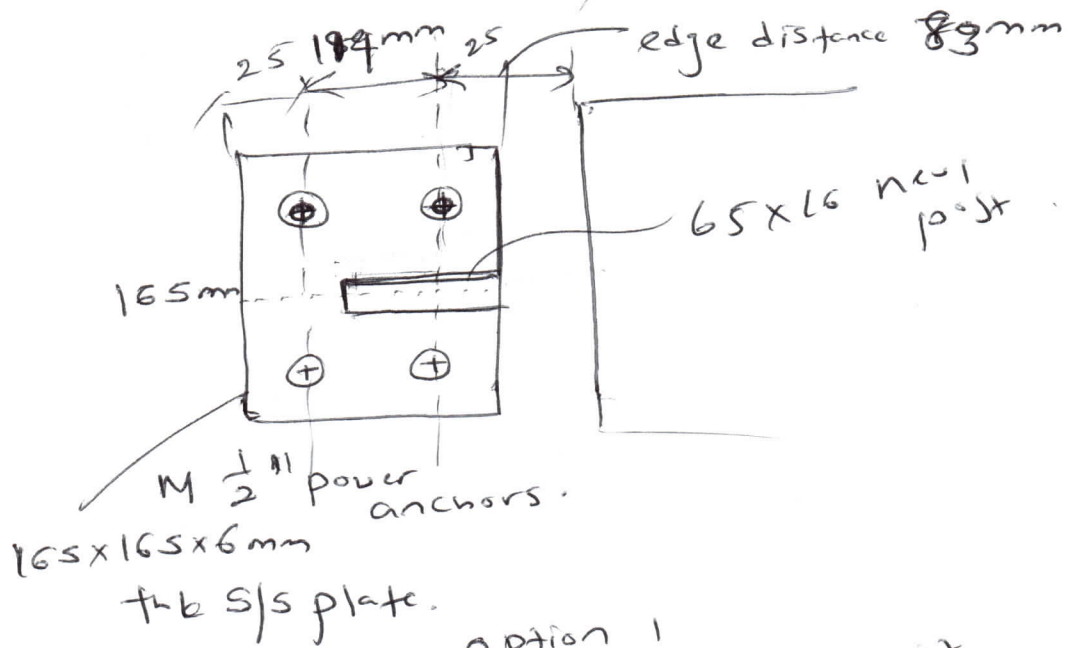 25 25
edge distance
65x16
post
165m
M 1/2" power
anchors.
165x165x6mm
thk S/S plate.
option 1